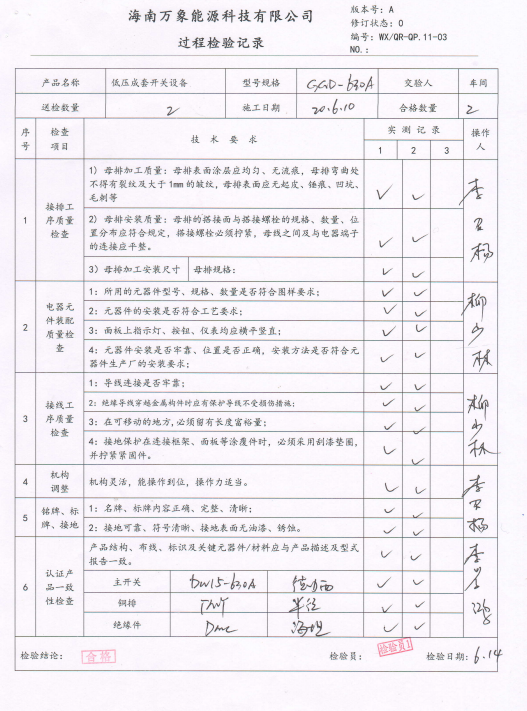 海南万象能源科技有限公司
过程检验记录
版本号：A
修订状态：0
编号：WX/QR-QP.11-03
NO.：
产品名称 低压成套开关设备 型号规格 GGD-630A 交验人 车间
送检数量 2 施工日期 20.6.10 合格数量 2
序号 检查项目 技 术 要 求 实 测 记 录 操作人
1 2 3
1 接排工序质量检查
1）母排加工质量：母排表面涂层应均匀、无流痕，母排弯曲处
不得有裂纹及大于1mm的皱纹，母排表面应无起皮、锤痕、凹坑、
毛刺等
✓ ✓ 李
2）母排安装质量：母排的搭接面与搭接螺栓的规格、数量、位
置分布应符合规定，搭接螺栓必须拧紧，母线之间及与电器端子
的连接应平整。
✓ ✓ 杨
3）母排加工安装尺寸 母排规格： ✓ ✓
2 电器元件装配质量检查
1：所用的元器件型号、规格、数量是否符合图样要求； ✓ ✓ 柳
2：元器件的安装是否符合工艺要求； ✓ ✓
3：面板上指示灯、按钮、仪表均应横平竖直； ✓ ✓
4：元器件安装是否牢靠、位置是否正确，安装方法是否符合元
器件生产厂的安装要求； ✓ ✓ 林
3 接线工序质量检查
1：导线连接是否牢靠； ✓ ✓
2：绝缘导线穿越金属构件时应有保护导线不受损伤措施； ✓ ✓ 柳
3：在可移动的地方，必须留有长度富裕量； ✓ ✓
4：接地保护在连接框架、面板等涂覆件时，必须采用刮漆垫圈，
并拧紧紧固件。 ✓ ✓ 林
4 机构调整 机构灵活，能操作到位，操作力适当。 ✓ ✓ 李
5 铭牌、标牌、接地
1：名牌、标牌内容正确、完整、清晰； ✓ ✓
2：接地可靠、符号清晰、接地表面无油漆、锈蚀。 ✓ ✓ 杨
6 认证产品一致性检查
产品结构、布线、标识及关键元器件/材料应与产品描述及型式
报告一致。 ✓ ✓ 李
主开关 DW15-630A 德力西 ✓ ✓
铜排 TMY ✓ ✓
绝缘件 DMC ✓ ✓
检验结论： 合格 检验员： 检验员1 检验日期：6.14